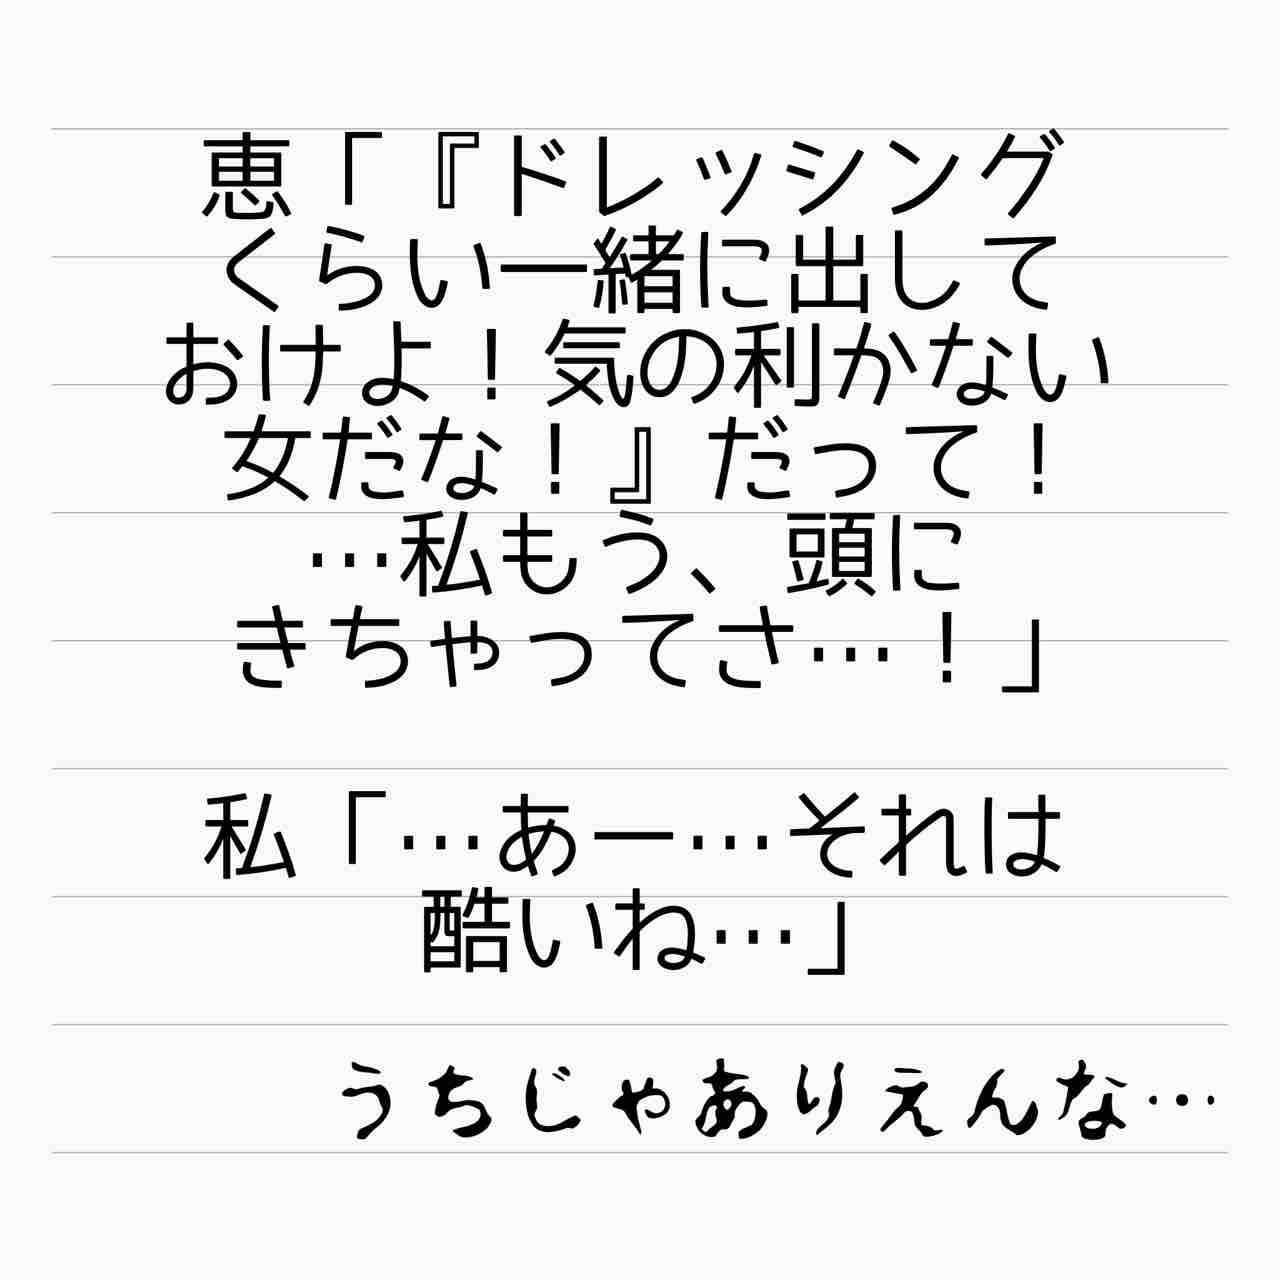 恵「『ドレッシング
くらい一緒に出して
おけよ！気の利かない
女だな！』だって！
…私もう、頭に
きちゃってさ…！」
私「…あー…それは
酷いね…」
うちじゃありえんな…